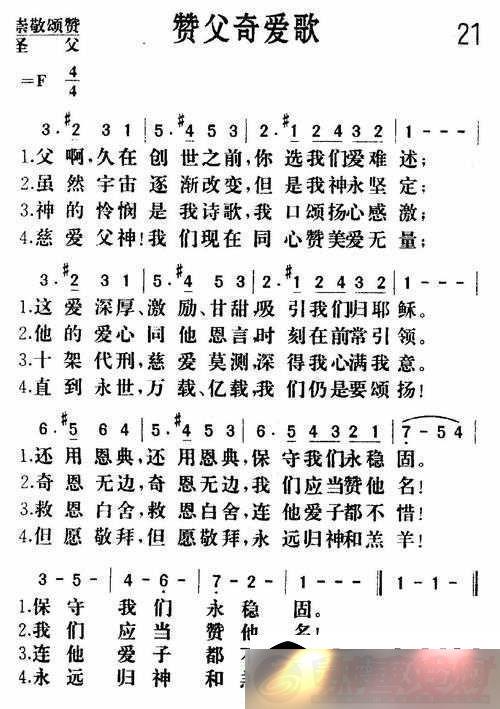 崇敬颂赞
圣 父
赞父奇爱歌
21
=F 4/4
3·#2 3 1 | 5·#4 5 3 | 2·#1 2 4 3 2 | 1 - - - |
1.父啊,久在创世之前,你选我们爱难述;
2.虽然宇宙逐渐改变,但是我神永坚定;
3.神的怜悯是我诗歌,我口颂扬心感激;
4.慈爱父神!我们现在同心赞美爱无量;
3·#2 3 1 | 5·#4 5 3 | 2·#1 2 4 3 2 | 1 - - - |
1.这爱深厚、激励、甘甜,吸引我们归耶稣。
2.他的爱心同他恩言,时刻在前常引领。
3.十架代刑,慈爱莫测,深得我心满我意。
4.直到永世,万载、亿载,我们仍是要颂扬!
6·#5 6 4 | 5·#4 5 3 | 6·5 4 3 2 1 | 7 - 5 4 |
1.还用恩典,还用恩典,保守我们永稳固。
2.奇恩无边,奇恩无边,我们应当赞他名!
3.救恩白舍,救恩白舍,连他爱子都不惜!
4.但愿敬拜,但愿敬拜,永远归神和羔羊!
3 - 5 - | 4 - 6 - | 7 - 2 - | 1 - - - ‖ 1 - 1 - ‖
1.保守我们永稳固。
2.我们应当赞他名!
3.连他爱子都
4.永远归神和